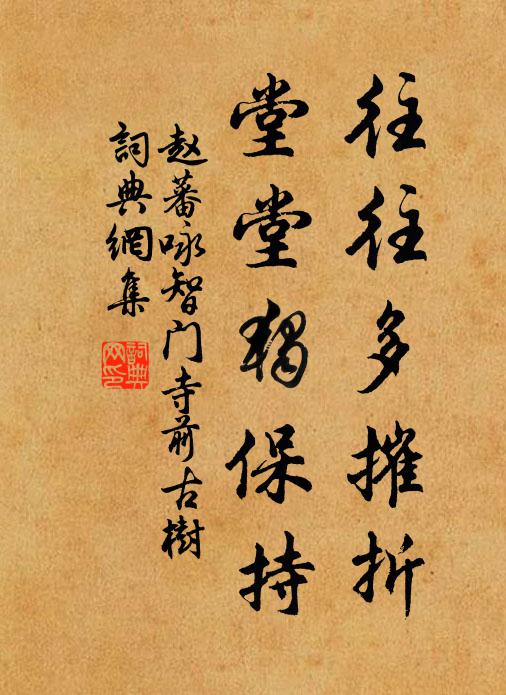 往往多摧折
堂堂獨保持
赵蕃咏智门寺前古樹
詞典網集
詞典
网印